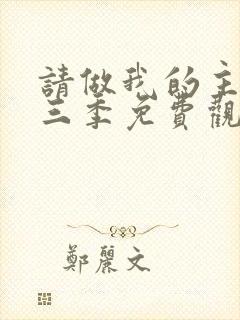 請做我的主
三季免費觀
鄭麗文